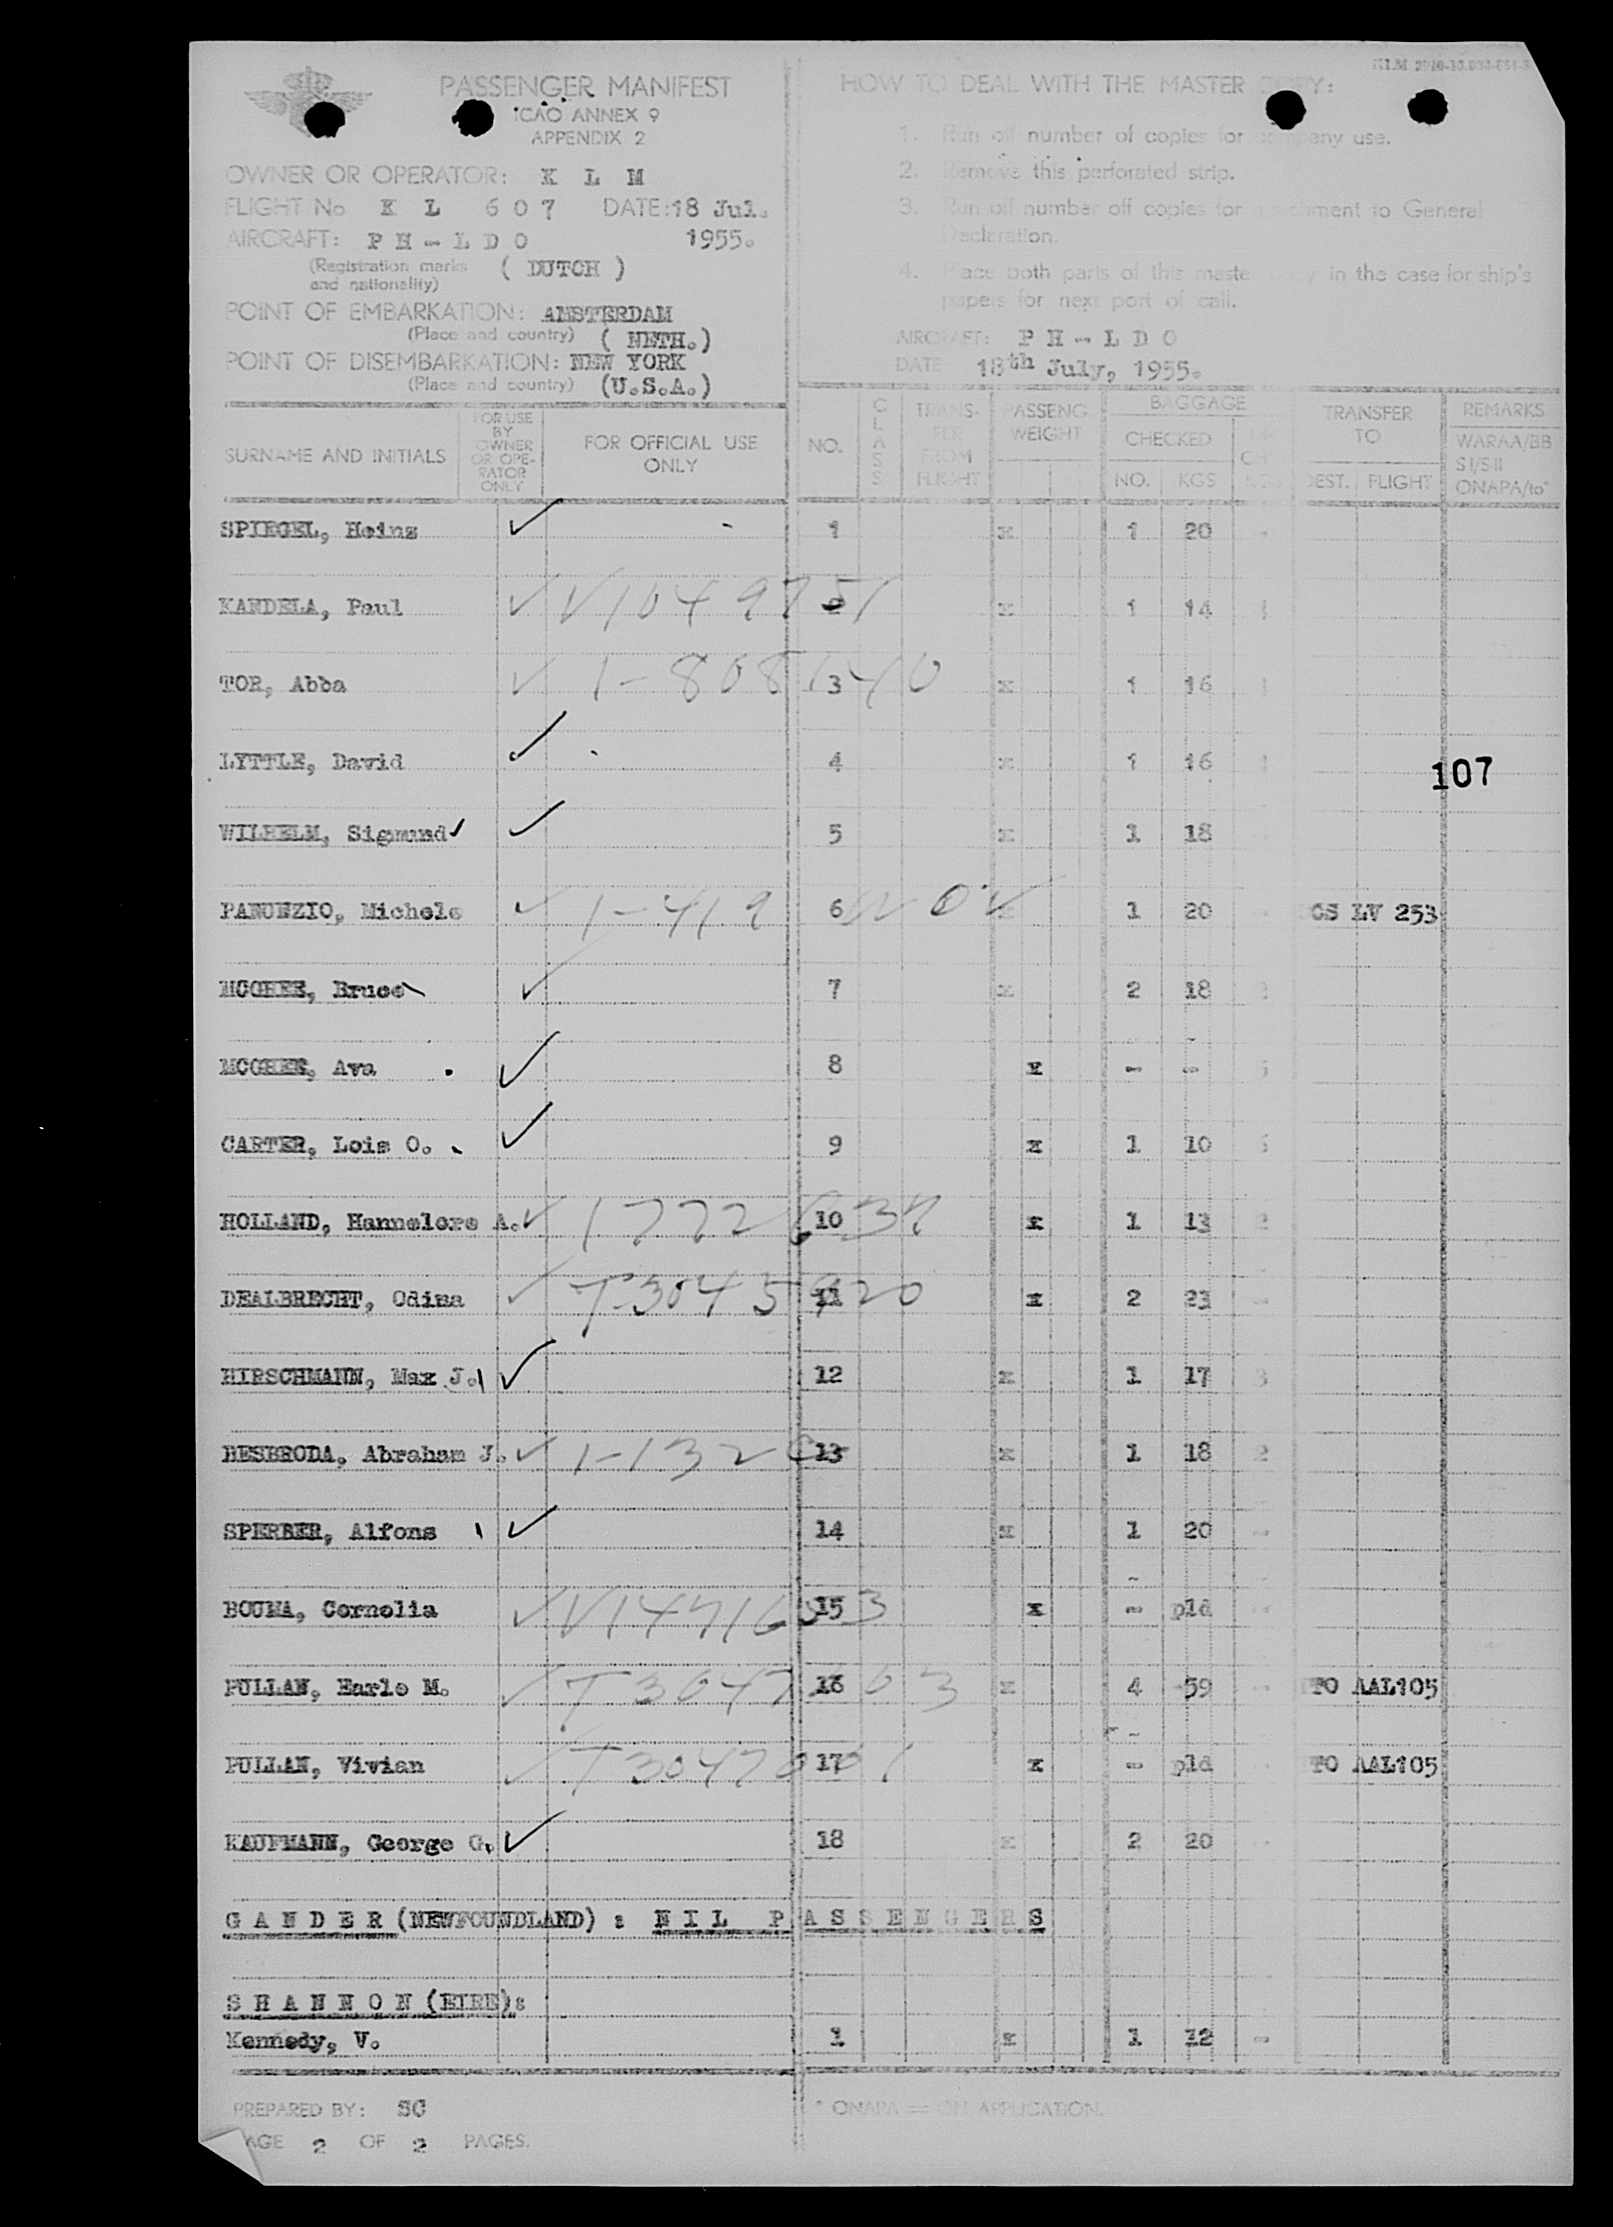 PASSENGER MANIFEST
ICAO ANNEX 9
APPENDIX 2
OWNER OR OPERATOR: K L M
FLIGHT No K L 607 DATE: 18 Jul. 1955.
AIRCRAFT: P H - L D O
(Registration marks and nationality) ( DUTCH )
POINT OF EMBARKATION: AMSTERDAM
(Place and country) ( NETH. )
POINT OF DISEMBARKATION: NEW YORK
(Place and country) (U.S.A.)
HOW TO DEAL WITH THE MASTER COPY:
1. Run off number of copies for company use.
2. Remove this perforated strip.
3. Run off number off copies for attachment to General
Declaration.
4. Place both parts of this master copy in the case for ship's
papers for next port of call.
AIRCRAFT: P H - L D O
DATE 18th July, 1955.
SURNAME AND INITIALS
FOR USE BY OWNER OR OPE-RATOR ONLY
FOR OFFICIAL USE ONLY
NO. CLASS TRANS-FER FROM FLIGHT PASSENG. WEIGHT BAGGAGE CHECKED NO. KGS TRANSFER TO DEST. FLIGHT REMARKS WARAA/BB SI/SII ONAPA/to*
SPIEGEL, Heinz 1 x 1 20 -
KANDELA, Paul V1049751 2 x 1 14
TOR, Abba 1-808 3 40 x 1 16
LYTTLE, David 4 x 1 16
107
WILHELM, Sigmund 5 x 1 18
PANUNZIO, Michele 1-419 6 x 1 20 - OS LV 253
MCGHEE, Bruce 7 x 2 18
MCGHEE, Ava 8 x - -
CARTER, Lois O. 9 x 1 10
HOLLAND, Hannelore A. 1772 10 37 x 1 13 2
DEALBRECHT, Odina T3045 11 20 x 2 23 -
HIRSCHMANN, Max J. 12 x 1 17 3
BESBRODA, Abraham J. 1-132 13 x 1 18 2
SPERBER, Alfons 14 x 1 20 -
BOUMA, Cornelia V14716 15 3 x - pld -
PULLAN, Earle M. T3047 16 03 x 4 59 - TO AAL105
PULLAN, Vivian T30470 17 1 x - pld - TO AAL105
KAUFMANN, George G. 18 x 2 20 -
G A N D E R (NEWFOUNDLAND) : N I L P A S S E N G E R S
S H A N N O N (EIRE):
Kennedy, V. 1 x 1 12 -
PREPARED BY: SG
* ONAPA = ON APPLICATION.
PAGE 2 OF 2 PAGES.